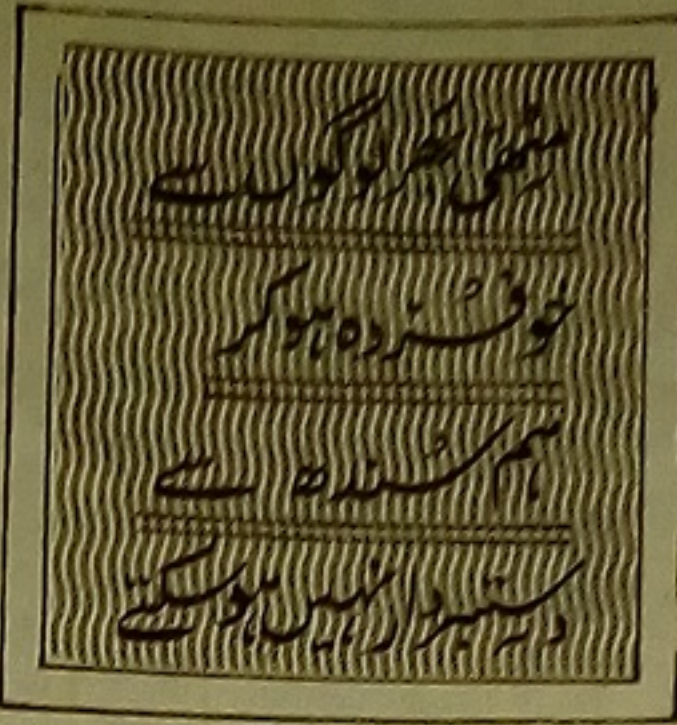 مٹھی بھر لوگوں سے
خوفزدہ ہوکر
ہم سندھ سے
دستبردار نہیں ہوسکتے